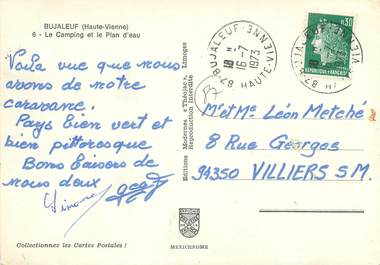 BUJALEUF (Haute-Vienne)
6 - Le Camping et le Plan d'eau
Voilà vue que nous
avons de notre
caravane.
Pays bien vert et
bien pittoresque
Bons baisers de
nous deux
Simone
Editions Modernes « Théojac » Limoges
Reproduction interdite
87 BUJALEUF HAUTE-VIENNE
18 H
16-7
1973
0,30
REPUBLIQUE FRANÇAISE
87
M^r et M^e Léon Metche
8 Rue Georges
94350 VILLIERS S.M.
Collectionnez les Cartes Postales !
MEXICHROME